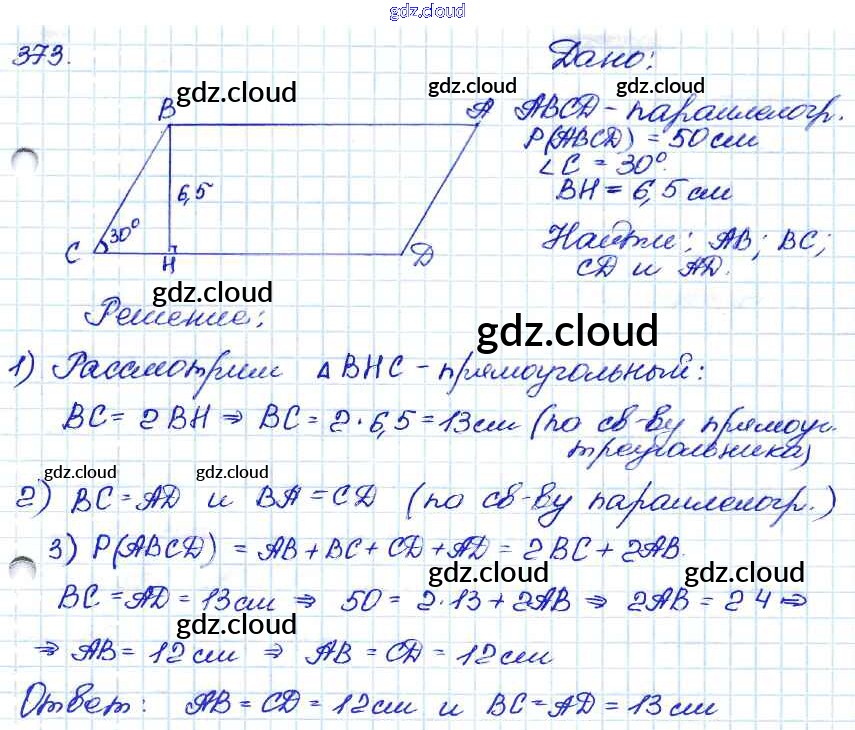 gdz.cloud
373.
Дано:
gdz.cloud
gdz.cloud gdz.cloud
B A
ABCD - параллелогр.
P(ABCD) = 50 см
∠C = 30°.
BH = 6,5 см
6,5
30°
C H D
Найти: AB; BC;
CD и AD.
gdz.cloud
Решение:
gdz.cloud
1) Рассмотрим △BHC - прямоугольный:
BC = 2BH ⇒ BC = 2·6,5 = 13 см (по св-ву прямоуг.
треугольника)
gdz.cloud gdz.cloud
2) BC = AD и BA = CD (по св-ву параллелогр.)
3) P(ABCD) = AB + BC + CD + AD = 2BC + 2AB.
gdz.cloud gdz.cloud
BC = AD = 13 см ⇒ 50 = 2·13 + 2AB ⇒ 2AB = 24 ⇒
gdz.cloud
⇒ AB = 12 см ⇒ AB = CD = 12 см
Ответ: AB = CD = 12 см и BC = AD = 13 см